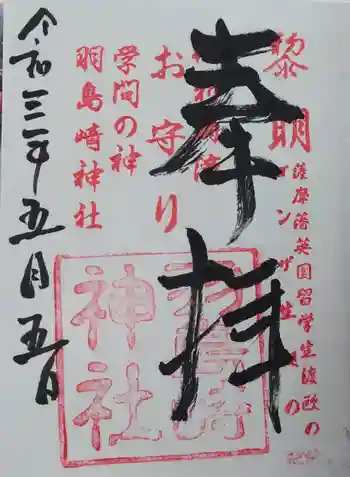 黎明
薩摩藩英国留学生渡欧の
奉拝
お守り
学問の神
羽島崎神社
羽島崎
神社
令和三年五月五日